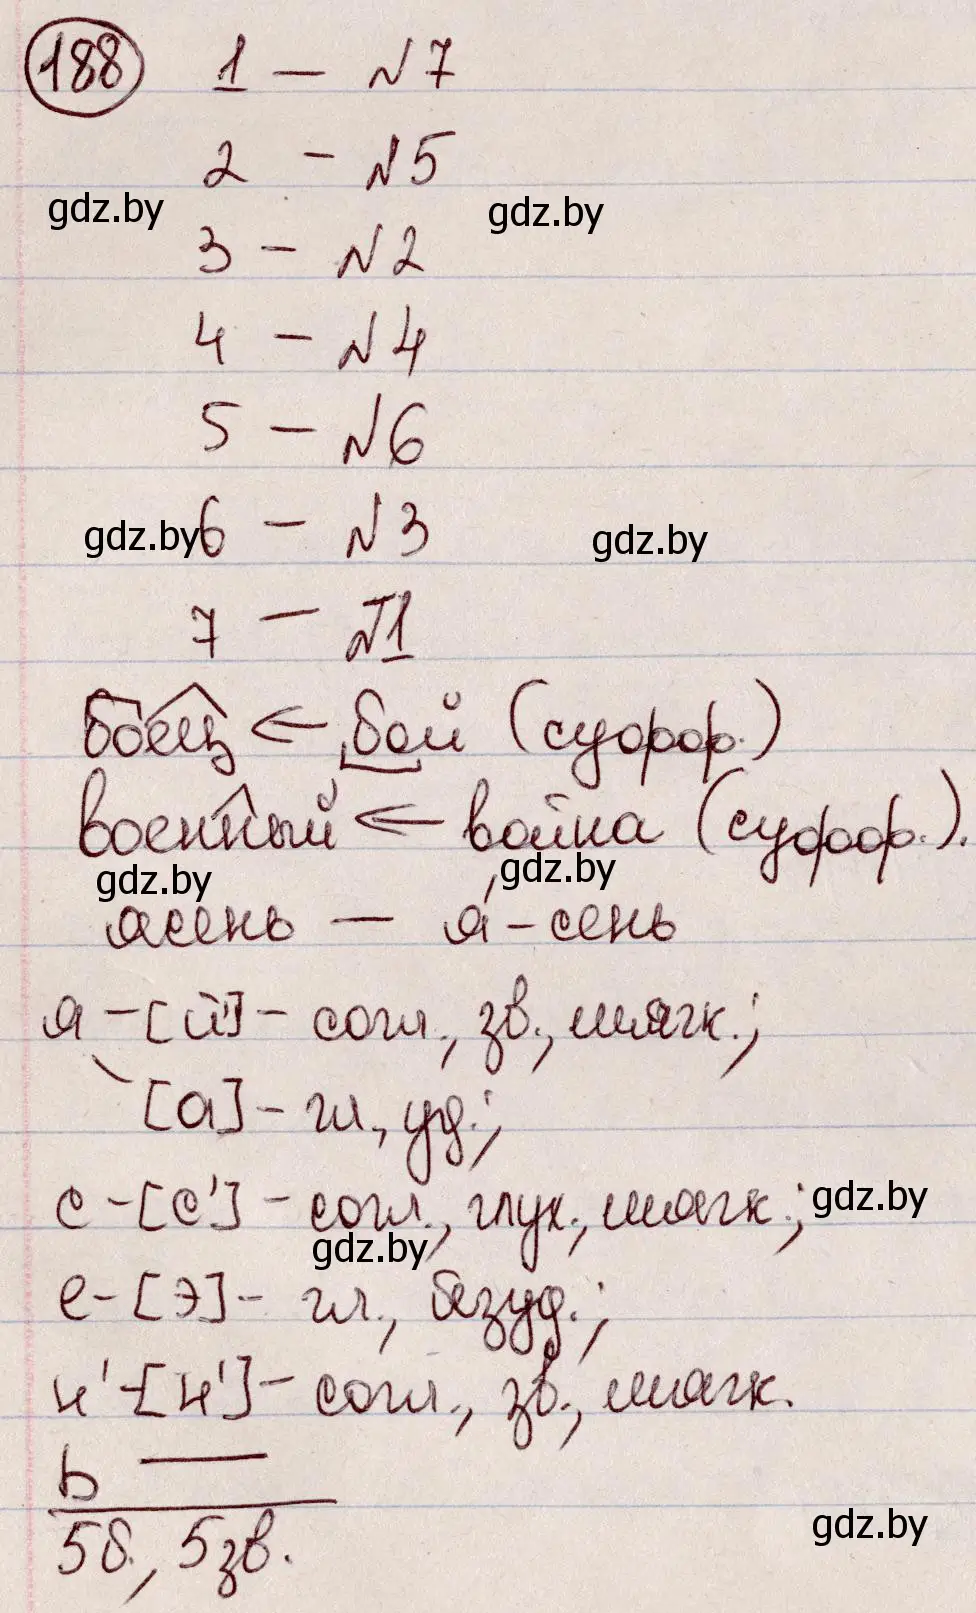 188 1 – №7
2 – №5
gdz.by gdz.by
3 – №2
4 – №4
5 – №6
gdz.by 6 – №3 gdz.by
7 – №1
боец ← бой (суффор.)
военный ← война (суффор.).
gdz.by gdz.by
ясень – я́-сень
я – [й'] – согл., зв., мягк.;
\ [а] – гл., уд.;
с – [с'] – согл., глух., мягк.; gdz.by
gdz.by
е – [э] – гл., безуд.;
н' – [н'] – согл., зв., мягк.
ь —
5б., 5зв. gdz.by